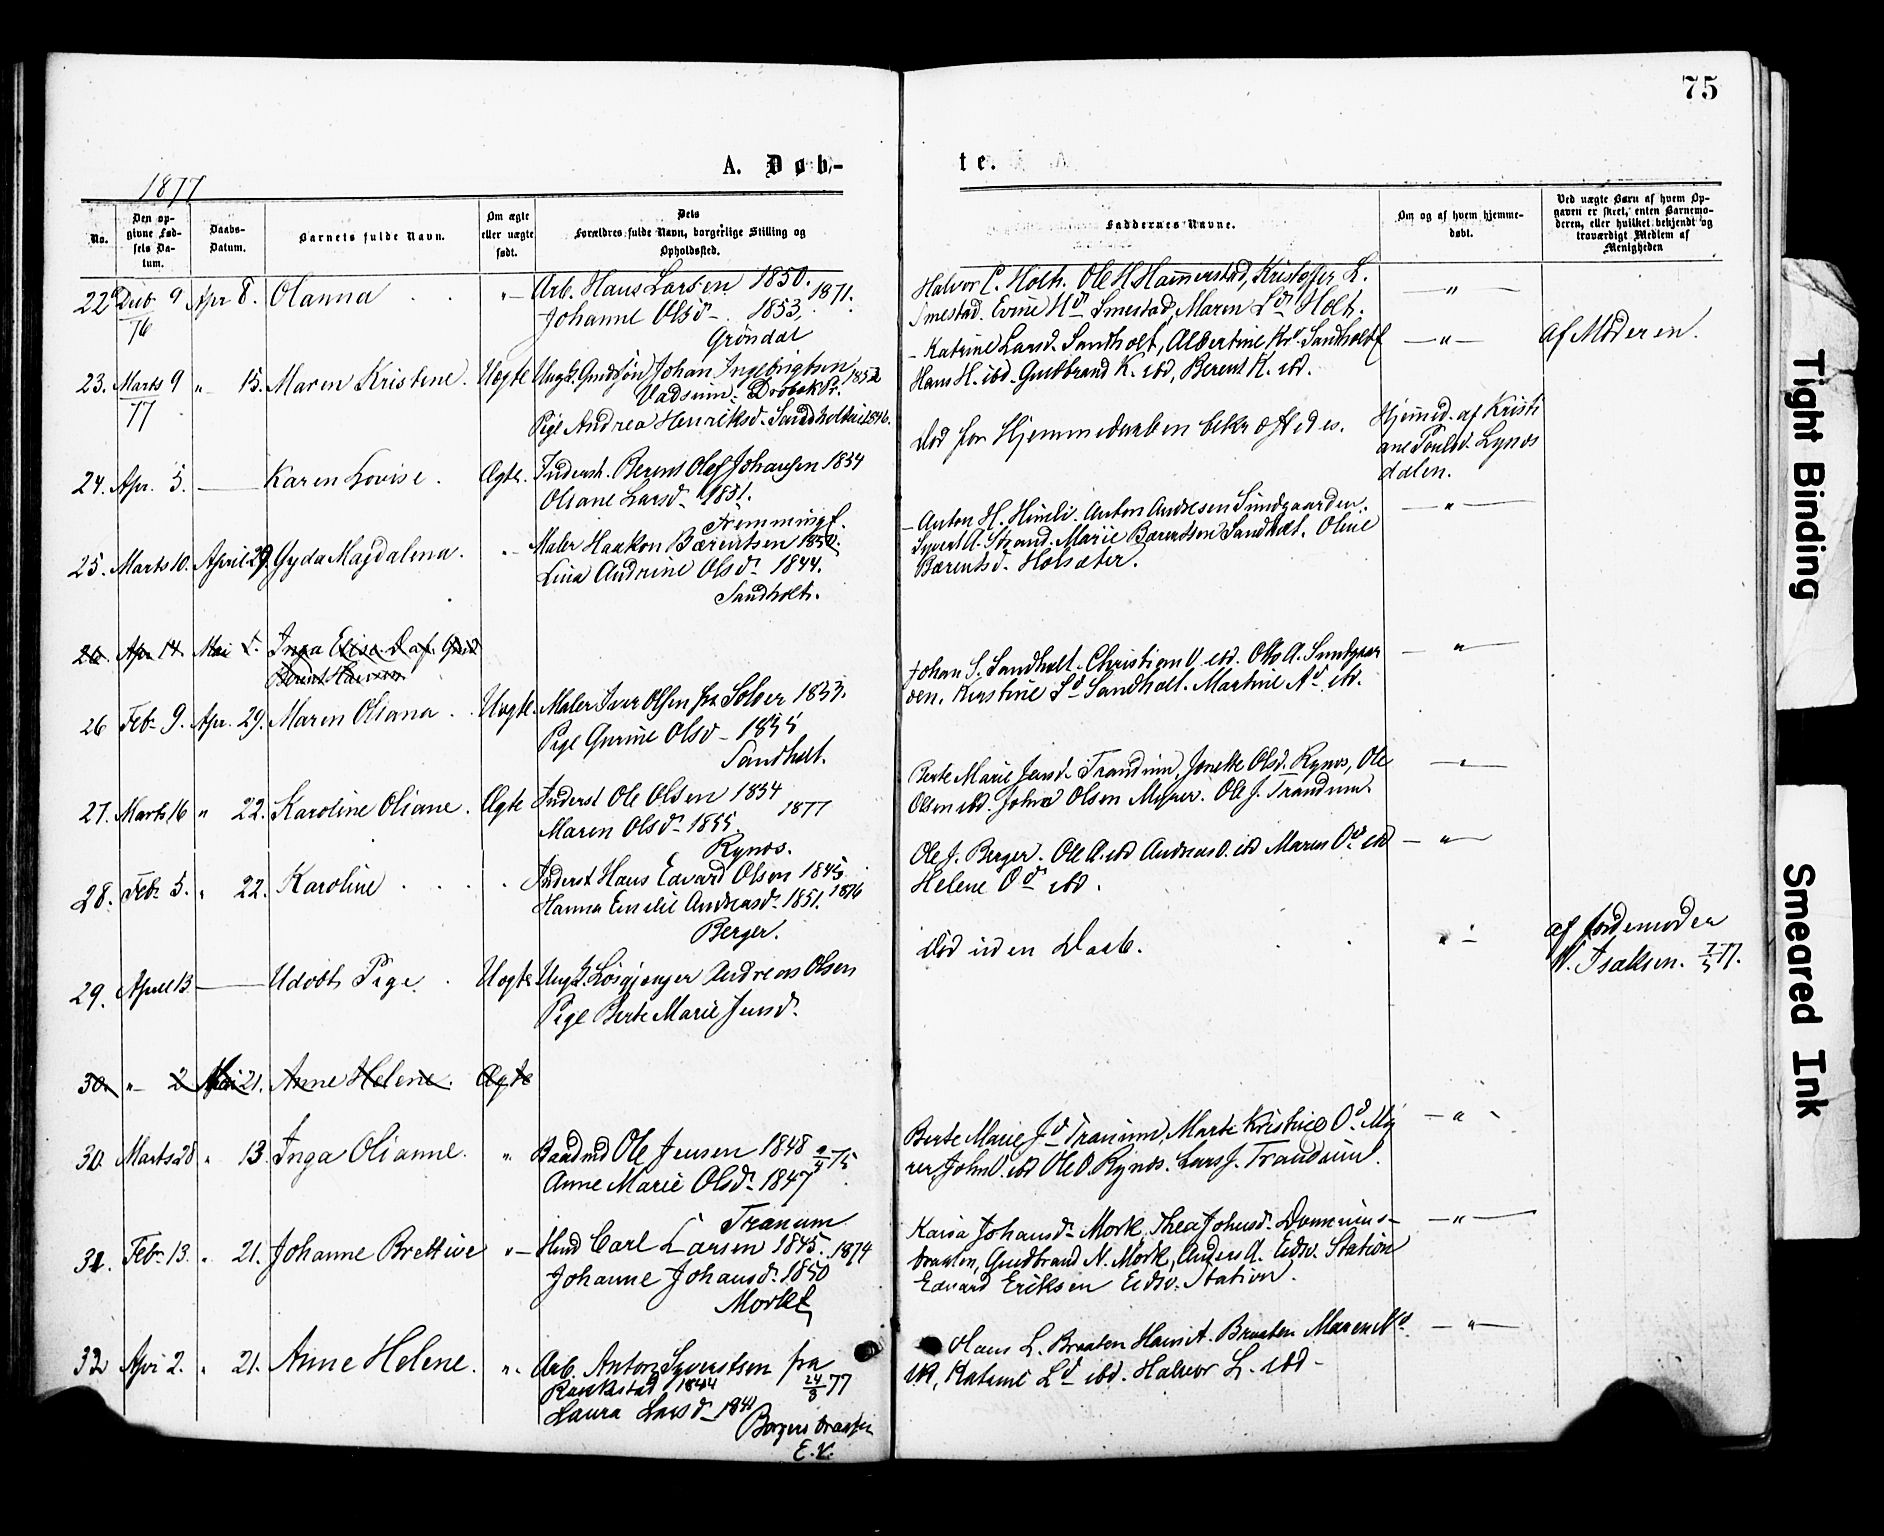 75
A. Døb-
te.
1877
No.
Den op-
givne Fød-
sels Da-
tum.
Daabs-
Datum.
Barnets fulde Navn.
Om ægte
eller uægte
født.
Dets
Forældres fulde Navn, borgerlige Stilling og
Opholdssted.
Faddernes Navne.
Om og af hvem hjemme-
døbt.
Ved uægte Børn af hvem Op-
gaven er skeet, enten Barnemo-
deren, eller hvilket bekjendt og
troværdigt Medlem af
Menigheden
22 9 Apr 8. Olanna
76
Arb. Hans Larsen 1850.
Johanne Olsd. 1853, 1871.
Grøndal
Halvor C. Holth. Ole H Hammerstad, Kristoffer L.
Smestad. Evine Hd Smestad, Maren Ld Holt.
23. Marts 9 " 15. Maren Kristine. Uægte
77
Ungk. Johan Ingebrigtsen
1852
Pige Andrea Henriksd. 1846.
- Katrine Larsd. Sandholt, Albertine Kd. Sandholt
Hans H. ibd. Gudbrand K. ibd, Berent K. ibd.
— " —
af Moderen.
24. Apr. 5. — Karen Lovise. Ægte.
Inderst. Berent Olaf Johansen 1854
Oliane Larsd. 1851.
Død før Hjemmedaaben bekræftedes.
Hjemmed. af Kristi
ane
dalen.
25. Marts 10. April 29. Gyda Magdalena.
Maler Haakon Bærentsen 1850.
Lina Andrine Olsd. 1844.
Sandholt.
- Anton H. Himli. Anton Andresen Sundgaarden.
Syvert A. Strand. Marie Bærentsen Sandholt. Oline
Bærentsd. Holsæter.
26. Apr 14 Mai Inga Elise D af
Berent Hansen
26 Feb. 9. Apr. 29. Maren Oliana. Uægte.
Maler Iver Olsen fra Soløer 1833.
Pige Gurine Olsd. 1855
Sandholt.
Johan S. Sandholt. Christian ibd. Otto A. Sundgaar
den. Kirstine Sd Sandholt. Martine Ad. ibd.
27. Marts 16 " 22. Karoline Oliane. Ægte
Inderst Ole Olsen 1854
Maren Olsd. 1855 1877
Rynos.
Berte Marie Jensd. Trandum, Olsd. Rynos, Ole
Olsen ibd. Johan Olsen Myrer. Ole J. Trandum.
28. Feb. 5. " 22. Karoline
Inderst Hans Edvard Olsen 1845
Hanna Emilie Andreasd. 1851. 1876
Berger.
Ole J. Berger. Ole A. ibd Andreas O. ibd Maren Od. ibd
Helene Od ibd.
29. April 13 — Udøbt Pige. Uægte
Ungk. Løsgjenger Andreas Olsen
Pige Berte Marie Jensd.
Død uden Daab.
af Jordemoder
Isaksen. 7/5 77.
30. " 2 Mai 21. Anne Helene. Ægte
30. Marts 28 " 13. Inga Olianne. "
Baadmd Ole Jensen 1848
Anne Marie Olsd. 1847
Tranum
Berte Marie Jd Tranum, Marte Kristine Od. My
rer, John O. ibd Ole O. Rynos. Lars J. Trandum.
31. Feb. 13. " 21. Johanne Brettine " —
Hmd Carl Larsen 1845. 1874
Johanne Johansd. 1850
Mork
Kaisa Johansd. Mork, Thea Johnsd.
braaten, Gudbrand N. Mork, Anders A. Eidsv. Station
Edvard Eriksen Eidsv. Station.
32 Apr 2. " 21. Anne Helene. "
Arb. Anton Syvertsen fra
1844 24/3 77
Laura Larsd. 1841
E.V.
Hans L. Braaten Hans A. Braaten Maren Nd.
ibd, Katrine Ld ibd. Halvor L. ibd -
Tight Binding
Smeared Ink